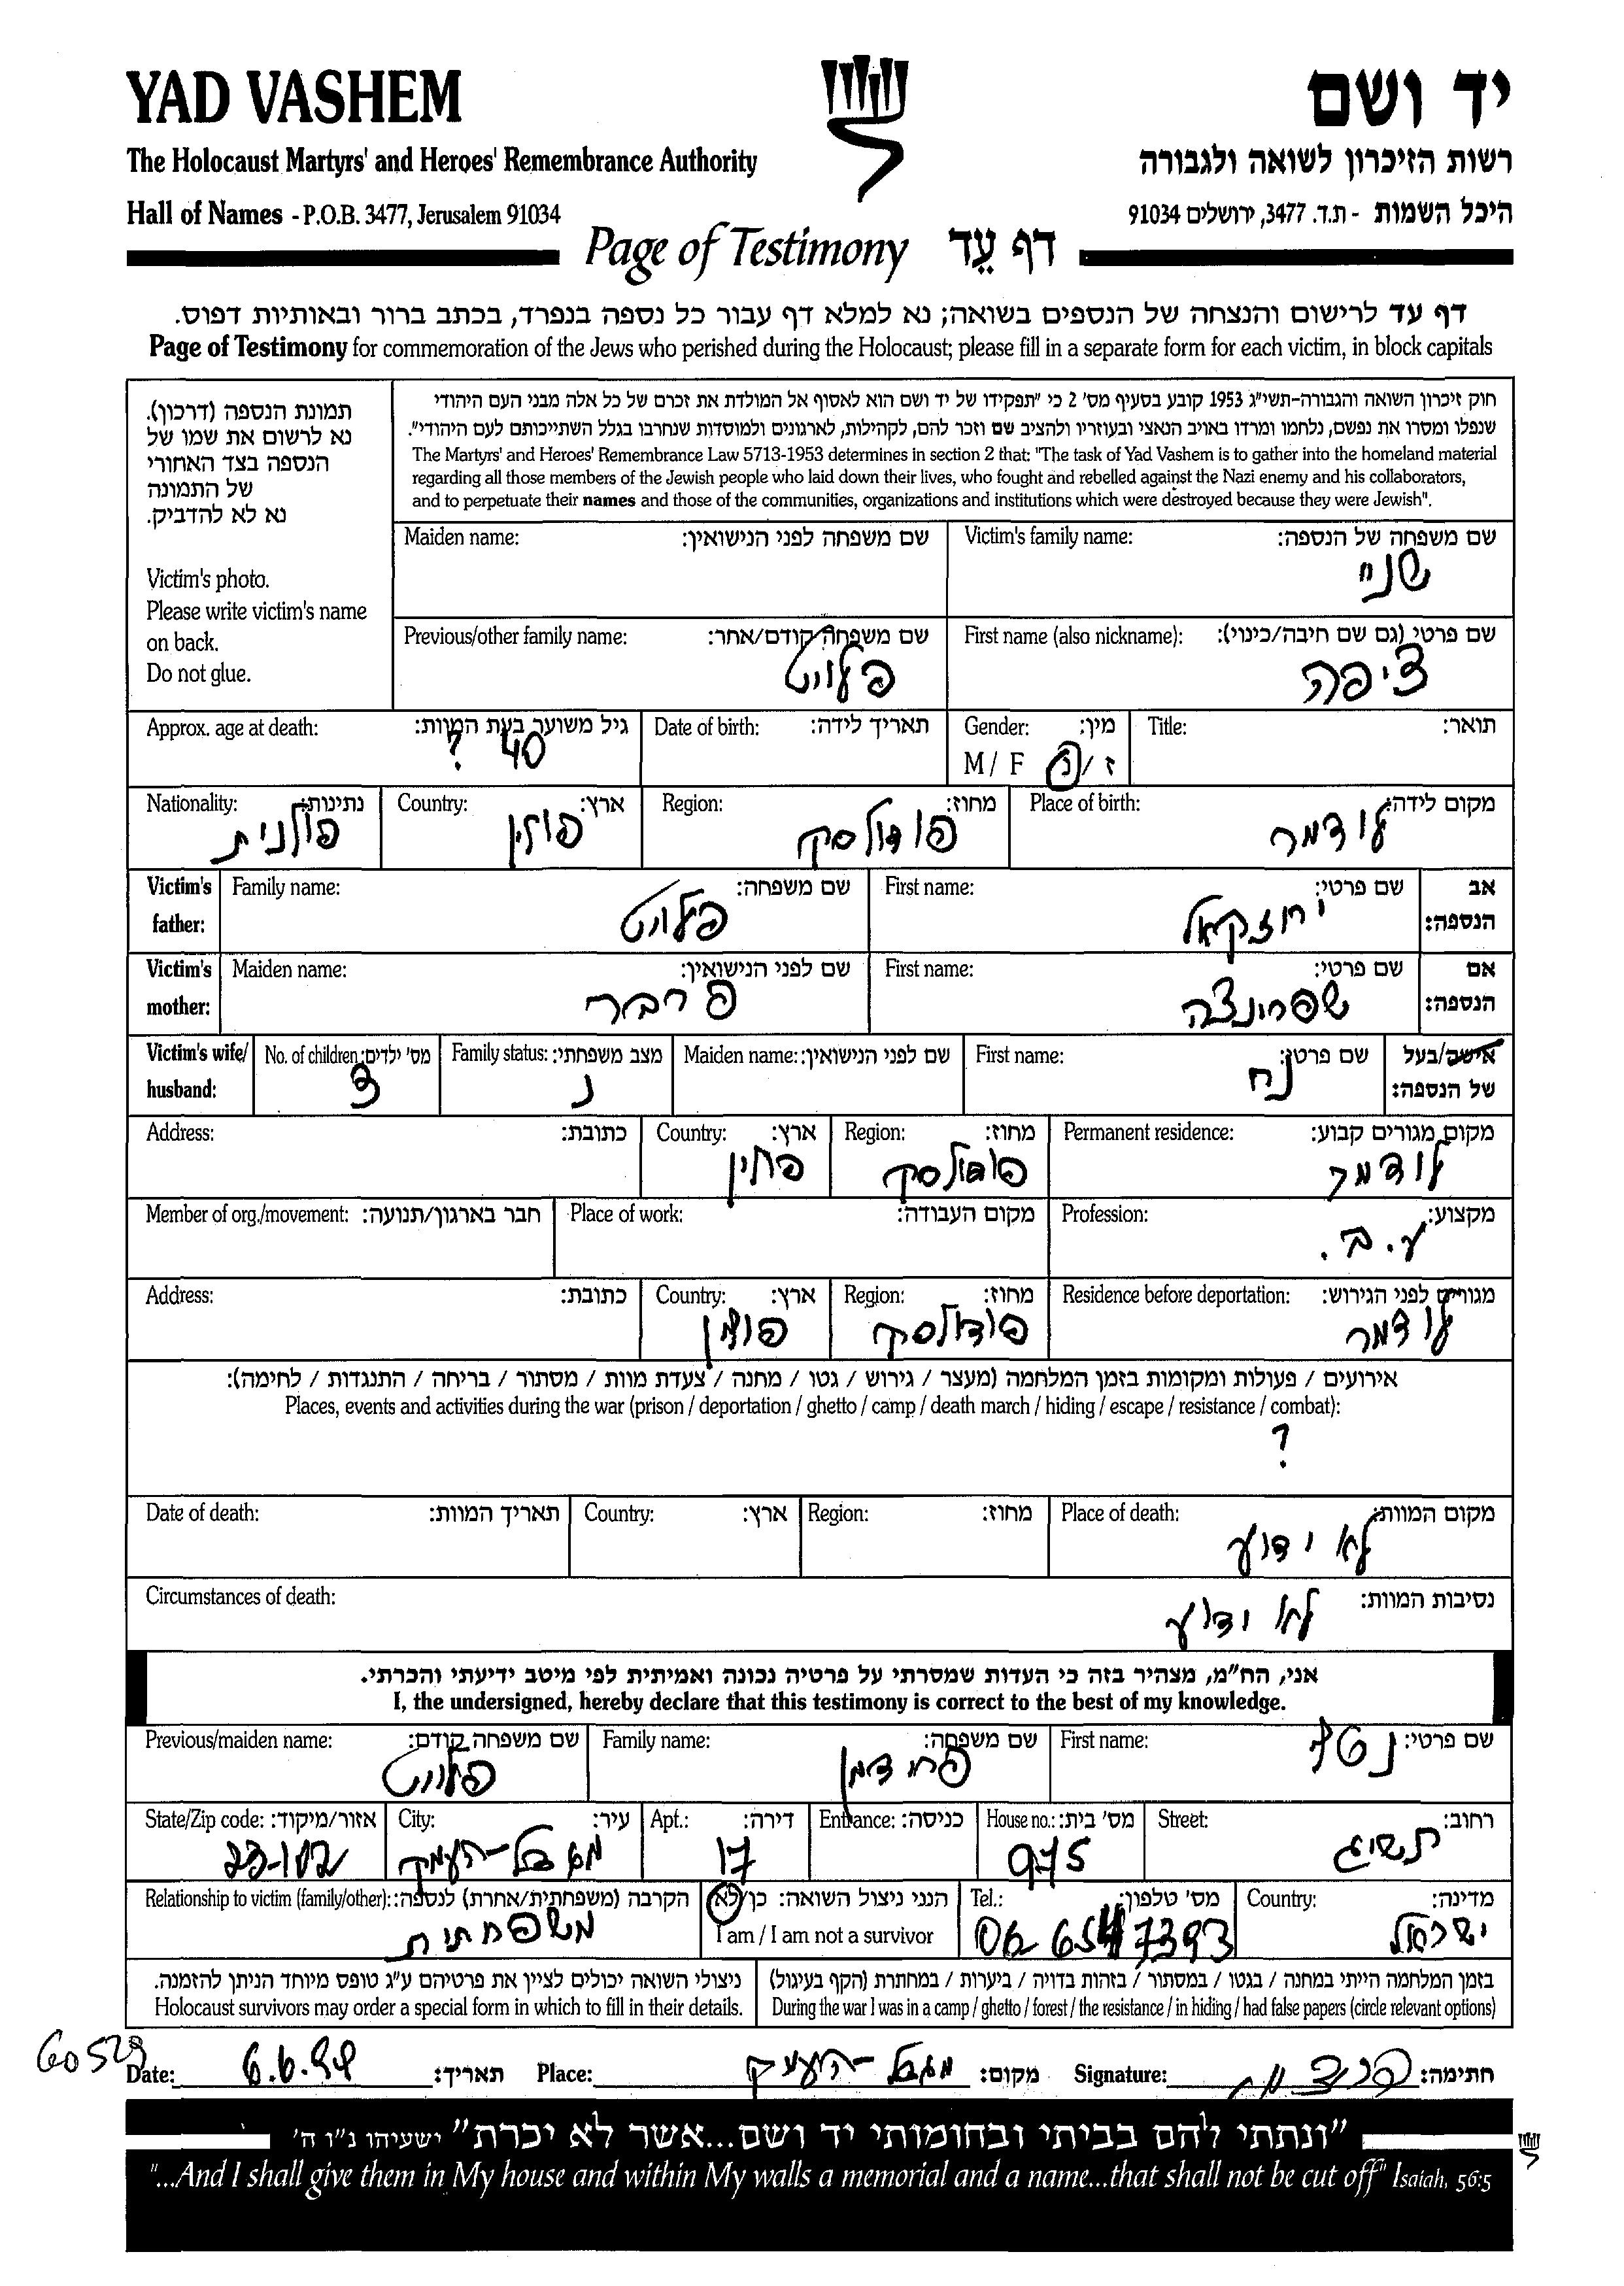 YAD VASHEM יד ושם
The Holocaust Martyrs' and Heroes' Remembrance Authority רשות הזיכרון לשואה ולגבורה
Hall of Names - P.O.B. 3477, Jerusalem 91034 היכל השמות - ת.ד. 3477, ירושלים 91034
Page of Testimony דף עֵד
דף עד לרישום והנצחה של הנספים בשואה; נא למלא דף עבור כל נספה בנפרד, בכתב ברור ובאותיות דפוס.
Page of Testimony for commemoration of the Jews who perished during the Holocaust; please fill in a separate form for each victim, in block capitals
תמונת הנספה (דרכון).
נא לרשום את שמו של
הנספה בצד האחורי
של התמונה
נא לא להדביק.
Victim's photo.
Please write victim's name
on back.
Do not glue.
חוק זיכרון השואה והגבורה-תשי"ג 1953 קובע בסעיף מס' 2 כי "תפקידו של יד ושם הוא לאסוף אל המולדת את זכרם של כל אלה מבני העם היהודי
שנפלו ומסרו את נפשם, נלחמו ומרדו באויב הנאצי ובעוזריו ולהציב שם וזכר להם, לקהילות, לארגונים ולמוסדות שנחרבו בגלל השתייכותם לעם היהודי".
The Martyrs' and Heroes' Remembrance Law 5713-1953 determines in section 2 that: "The task of Yad Vashem is to gather into the homeland material
regarding all those members of the Jewish people who laid down their lives, who fought and rebelled against the Nazi enemy and his collaborators,
and to perpetuate their names and those of the communities, organizations and institutions which were destroyed because they were Jewish".
Victim's family name: שם משפחה של הנספה: Maiden name: שם משפחה לפני הנישואין:
First name (also nickname): שם פרטי (גם שם חיבה/כינוי): Previous/other family name: שם משפחה קודם/אחר:
ציפה פלויט
Title: תואר: Gender: מין: Date of birth: תאריך לידה: Approx. age at death: גיל משוער בעת המוות:
M / F ז / נ 40 ?
Place of birth: מקום לידה: Region: מחוז: Country: ארץ: Nationality: נתינות:
לודמר פודולסק פולין פולנית
Victim's father: אב הנספה: First name: שם פרטי: Family name: שם משפחה:
יחזקאל פלויט
Victim's mother: אם הנספה: First name: שם פרטי: Maiden name: שם לפני הנישואין:
שפרינצה פרבר
Victim's wife/ husband: אישה/בעל של הנספה: First name: שם פרטי: Maiden name: שם לפני הנישואין: Family status: מצב משפחתי: No. of children: מס' ילדים:
נח נ 3
Permanent residence: מקום מגורים קבוע: Region: מחוז: Country: ארץ: Address: כתובת:
לודמר פודולסק פולין
Profession: מקצוע: Place of work: מקום העבודה: Member of org./movement: חבר בארגון/תנועה:
ע.ב.
Residence before deportation: מגורים לפני הגירוש: Region: מחוז: Country: ארץ: Address: כתובת:
לודמר פודולסק פולין
אירועים / פעולות ומקומות בזמן המלחמה (מעצר / גירוש / גטו / מחנה / צעדת מוות / מסתור / בריחה / התנגדות / לחימה):
Places, events and activities during the war (prison / deportation / ghetto / camp / death march / hiding / escape / resistance / combat):
?
Place of death: מקום המוות: Region: מחוז: Country: ארץ: Date of death: תאריך המוות:
לא ידוע
Circumstances of death: נסיבות המוות:
לא ידוע
אני, הח"מ, מצהיר בזה כי העדות שמסרתי על פרטיה נכונה ואמיתית לפי מיטב ידיעתי והכרתי.
I, the undersigned, hereby declare that this testimony is correct to the best of my knowledge.
First name: שם פרטי: Family name: שם משפחה: Previous/maiden name: שם משפחה קודם:
פרידמן פלויט
Street: רחוב: House no.: מס' בית: Entrance: כניסה: Apt.: דירה: City: עיר: State/Zip code: אזור/מיקוד:
975 17 מגדל-העמק 23-102
Country: מדינה: Tel.: מס' טלפון: הנני ניצול השואה: כן/לא Relationship to victim (family/other): הקרבה (משפחתית/אחרת) לנספה:
I am / I am not a survivor
ישראל 06 6547393 משפחתית
בזמן המלחמה הייתי במחנה / בגטו / במסתור / בזהות בדויה / ביערות / במחתרת (הקף בעיגול)
During the war I was in a camp / ghetto / forest / the resistance / in hiding / had false papers (circle relevant options)
ניצולי השואה יכולים לציין את פרטיהם ע"ג טופס מיוחד הניתן להזמנה.
Holocaust survivors may order a special form in which to fill in their details.
Date: תאריך: Place: מגדל-העמק מקום: Signature: חתימה:
"ונתתי להם בביתי ובחומותי יד ושם...אשר לא יכרת" ישעיהו נ"ו ה'
"...And I shall give them in My house and within My walls a memorial and a name...that shall not be cut off" Isaiah, 56:5